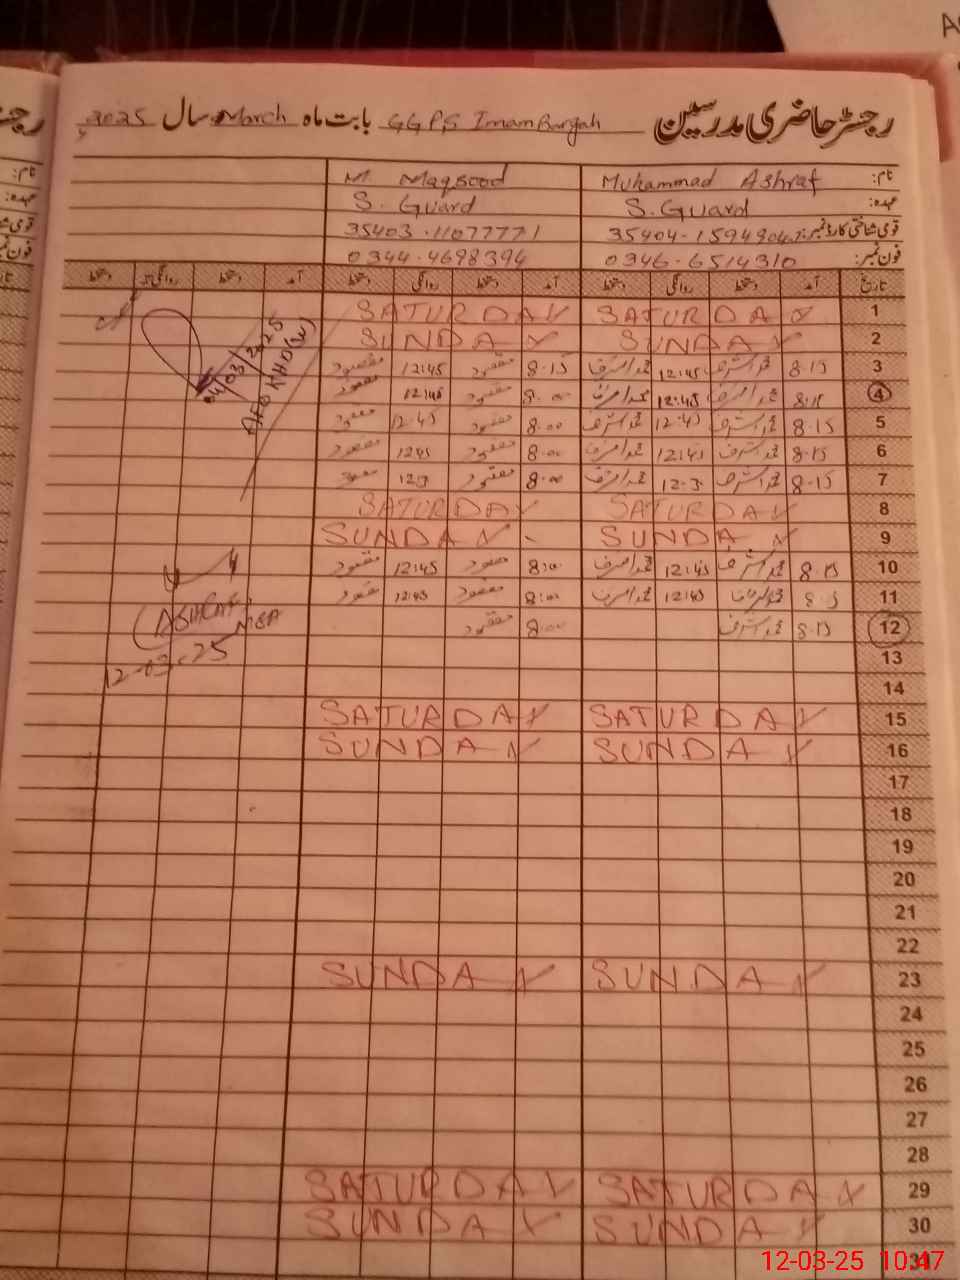 رجسٹر حاضری مدرسین GGPS Imam Bargah بابت ماہ March سال 2025
نام: Muhammad Ashraf M Maqsood
عہدہ: S. Guard S. Guard
قومی شناختی کارڈ نمبر: 35403-11077771
فون نمبر: 0346-6514310 0344-4698394
تاریخ آمد دستخط روانگی دستخط آمد دستخط روانگی دستخط آمد دستخط روانگی دستخط
1 SATURDAY SATURDAY
2 SUNDAY SUNDAY
3 8-15 محمد اشرف 12:45 محمد اشرف 8-15 مقصود 12:45 مقصود
4 محمد اشرف 12:45 محمد اشرف 8:00 مقصود 12:45 مقصود
5 8-15 محمد اشرف 12:45 محمد اشرف 8:00 مقصود 12:45 مقصود
6 8-15 محمد اشرف 12:45 محمد اشرف 8:00 مقصود 1245 مقصود
7 8-15 محمد اشرف 12-3 محمد اشرف 8:00 مقصود 123 مقصود
8 SATURDAY SATURDAY
9 SUNDAY SUNDAY
10 8-15 محمد اشرف 12:45 محمد اشرف 8:00 مقصود 12:45 مقصود
11 محمد اشرف 12:45 محمد اشرف 8:00 مقصود 12:45 مقصود
12 8-15 محمد اشرف 8:00 مقصود
13
14
15 SATURDAY SATURDAY
16 SUNDAY SUNDAY
17
18
19
20
21
22
23 SUNDAY SUNDAY
24
25
26
27
28
29 SATURDAY SATURDAY
30 SUNDAY SUNDAY
31
04/03/2025
(ASHRAF)
MEA
12-03-25
12-03-25 10:47